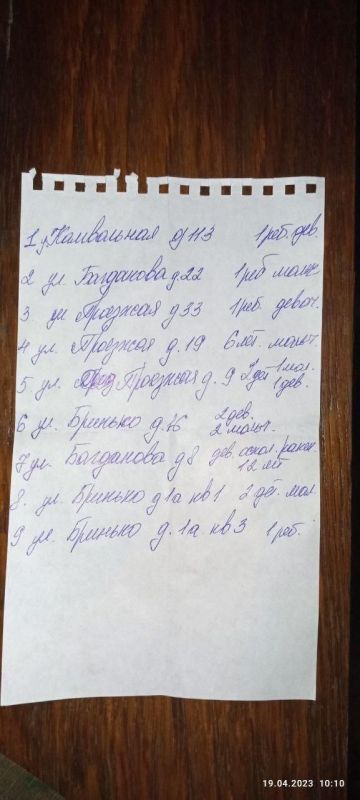 1 у Камвольная д 113 1 реб. дев.
2 ул. Багданова д 22 1 реб мальч.
3 ул Проезжая д 33 1 реб. девоч.
4 ул. Проезжая д. 19 6 лет. мальч.
5 ул. Проезжая д. 9 2 дет 1 мал.
1 дев.
6 ул. Бринько д. 2 дев.
2 мальч.
7 ул. Богданова д 8 дев. оскол. ранен.
12 лет
8. ул. Бринько д 1а кв 1 2 дет. мал.
9 ул. Бринько д. 1а. кв 3 1 реб.
19.04.2023 10:10